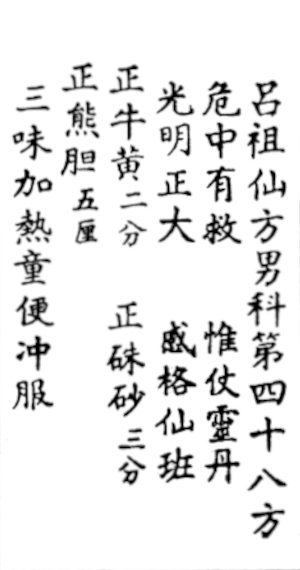 呂祖仙方男科第四十八方
危中有救　惟仗靈丹
光明正大　感格仙班
正牛黃二分　正硃砂三分
正熊胆五厘
三味加熱童便冲服